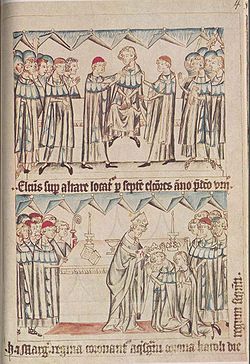 4.
Elcus sup altare locat p septe elcores ano pdco viii
h a Marg regina coronant aqsgni corona karoli die
regum